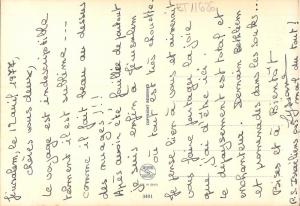 Jérusalem, le 12 avril 1977,
chères vous deux,
Le voyage est indescriptible
tellement il est sublime ---
comme il fait beau au dessus
des nuages !!!
Après avoir été fouillée de partout
je suis enfin à Jérusalem
où tout est très chouette
Je pense bien à vous et aimerais
vous faire partager la joie
que j'ai d'être ici
le dépaysement est total et
enchanteur. Demain Bethléem
et promenades dans les souks...
Bises et à Bientôt
COPYRIGHT RESERVED